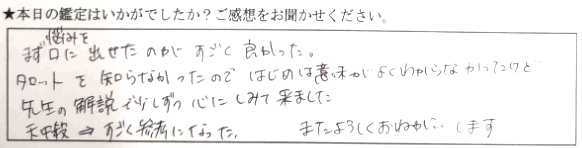 ★本日の鑑定はいかがでしたか？ご感想をお聞かせください。
悩みを
まず口に出せたのがすごく良かった。
タロットを知らなかったのではじめは意味がよくわからなかったけど
先生の解説で少しずつ心にしみて来ました
天中殺⇒すごく参考になった。 またよろしくおねがいします